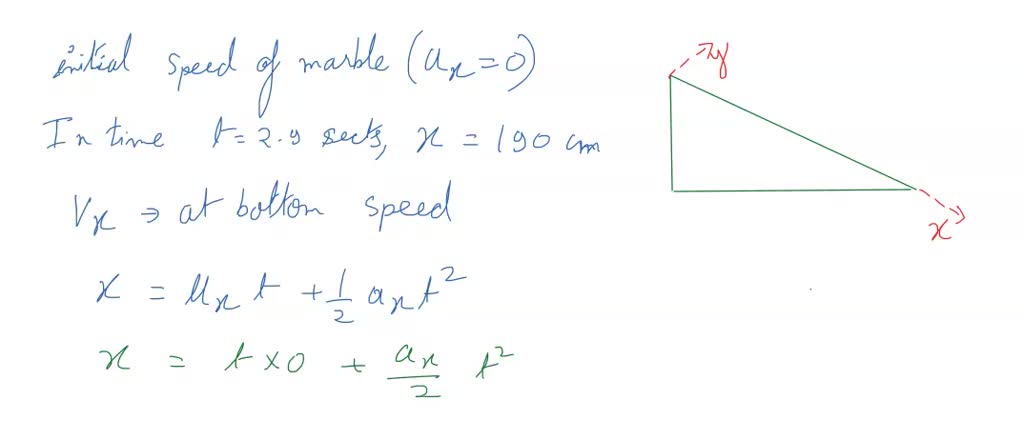 initial speed of marble (u_x = 0)
In time t = 2.9 secs, x = 190 cm
V_x → at bottom speed
x = u_x t + 1/2 a_x t^2
x = t × 0 + a_x/2 t^2
y
x